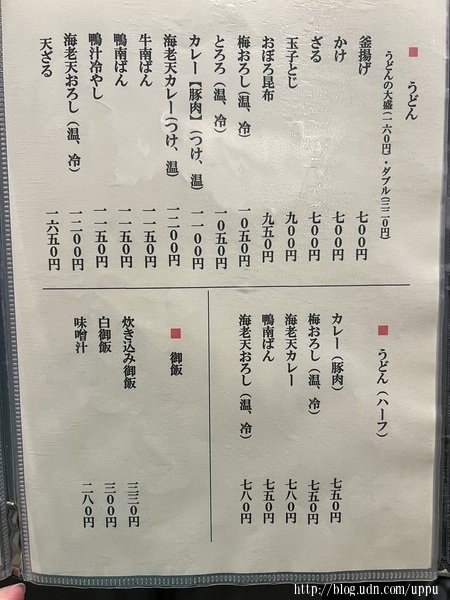 ■ うどん
うどんの大盛(一六〇円)・ダブル(三二〇円)
釜揚げ 七〇〇円
かけ 七〇〇円
ざる 七〇〇円
玉子とじ 九〇〇円
おぼろ昆布 九五〇円
梅おろし(温、冷) 一〇五〇円
とろろ(温、冷) 一〇五〇円
カレー【豚肉】(つけ、温) 一一〇〇円
海老天カレー(つけ、温) 一二〇〇円
牛南ばん 一一五〇円
鴨南ばん 一一五〇円
鴨汁冷やし 一一五〇円
海老天おろし(温、冷) 一二〇〇円
天ざる 一六五〇円
■ うどん(ハーフ)
カレー(豚肉) 七五〇円
梅おろし(温、冷) 七五〇円
海老天カレー 七八〇円
鴨南ばん 七五〇円
海老天おろし(温、冷) 七八〇円
■ 御飯
炊き込み御飯 三三〇円
白御飯 三〇〇円
味噌汁 二八〇円
http://blog.udn.com/uppu